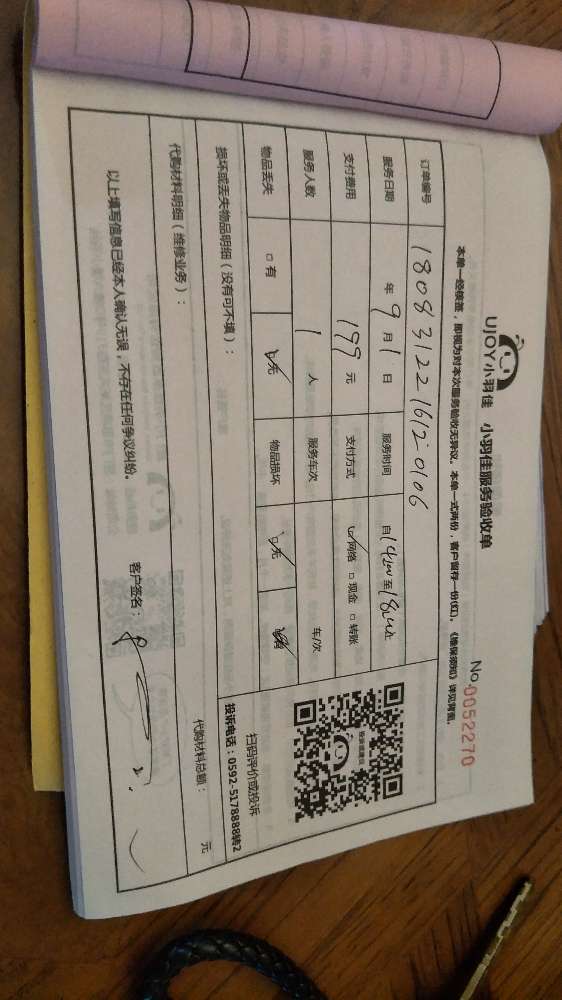 UJOY小羽佳 小羽佳服务验收单
No.0052270
本单一经核签，即视为对本次服务验收无异议。本单一式两份，客户留存一份(红)。《维保须知》详见背面。
订单编号 180831221612-0106
服务日期 年9月1日 服务时间 自14:00至18:00止
支付费用 199元 支付方式 网络 □现金 □转账
服务人数 1人 服务车次 车/次
物品丢失 □有 □无 物品损坏 □无
扫码评价或投诉
投诉电话：0592-5178888转2
损坏或丢失物品明细（没有可不填）：
代购材料明细（维修业务）： 代购材料总额： 元
以上填写信息已经本人确认无误，不存在任何争议纠纷。 客户签名：